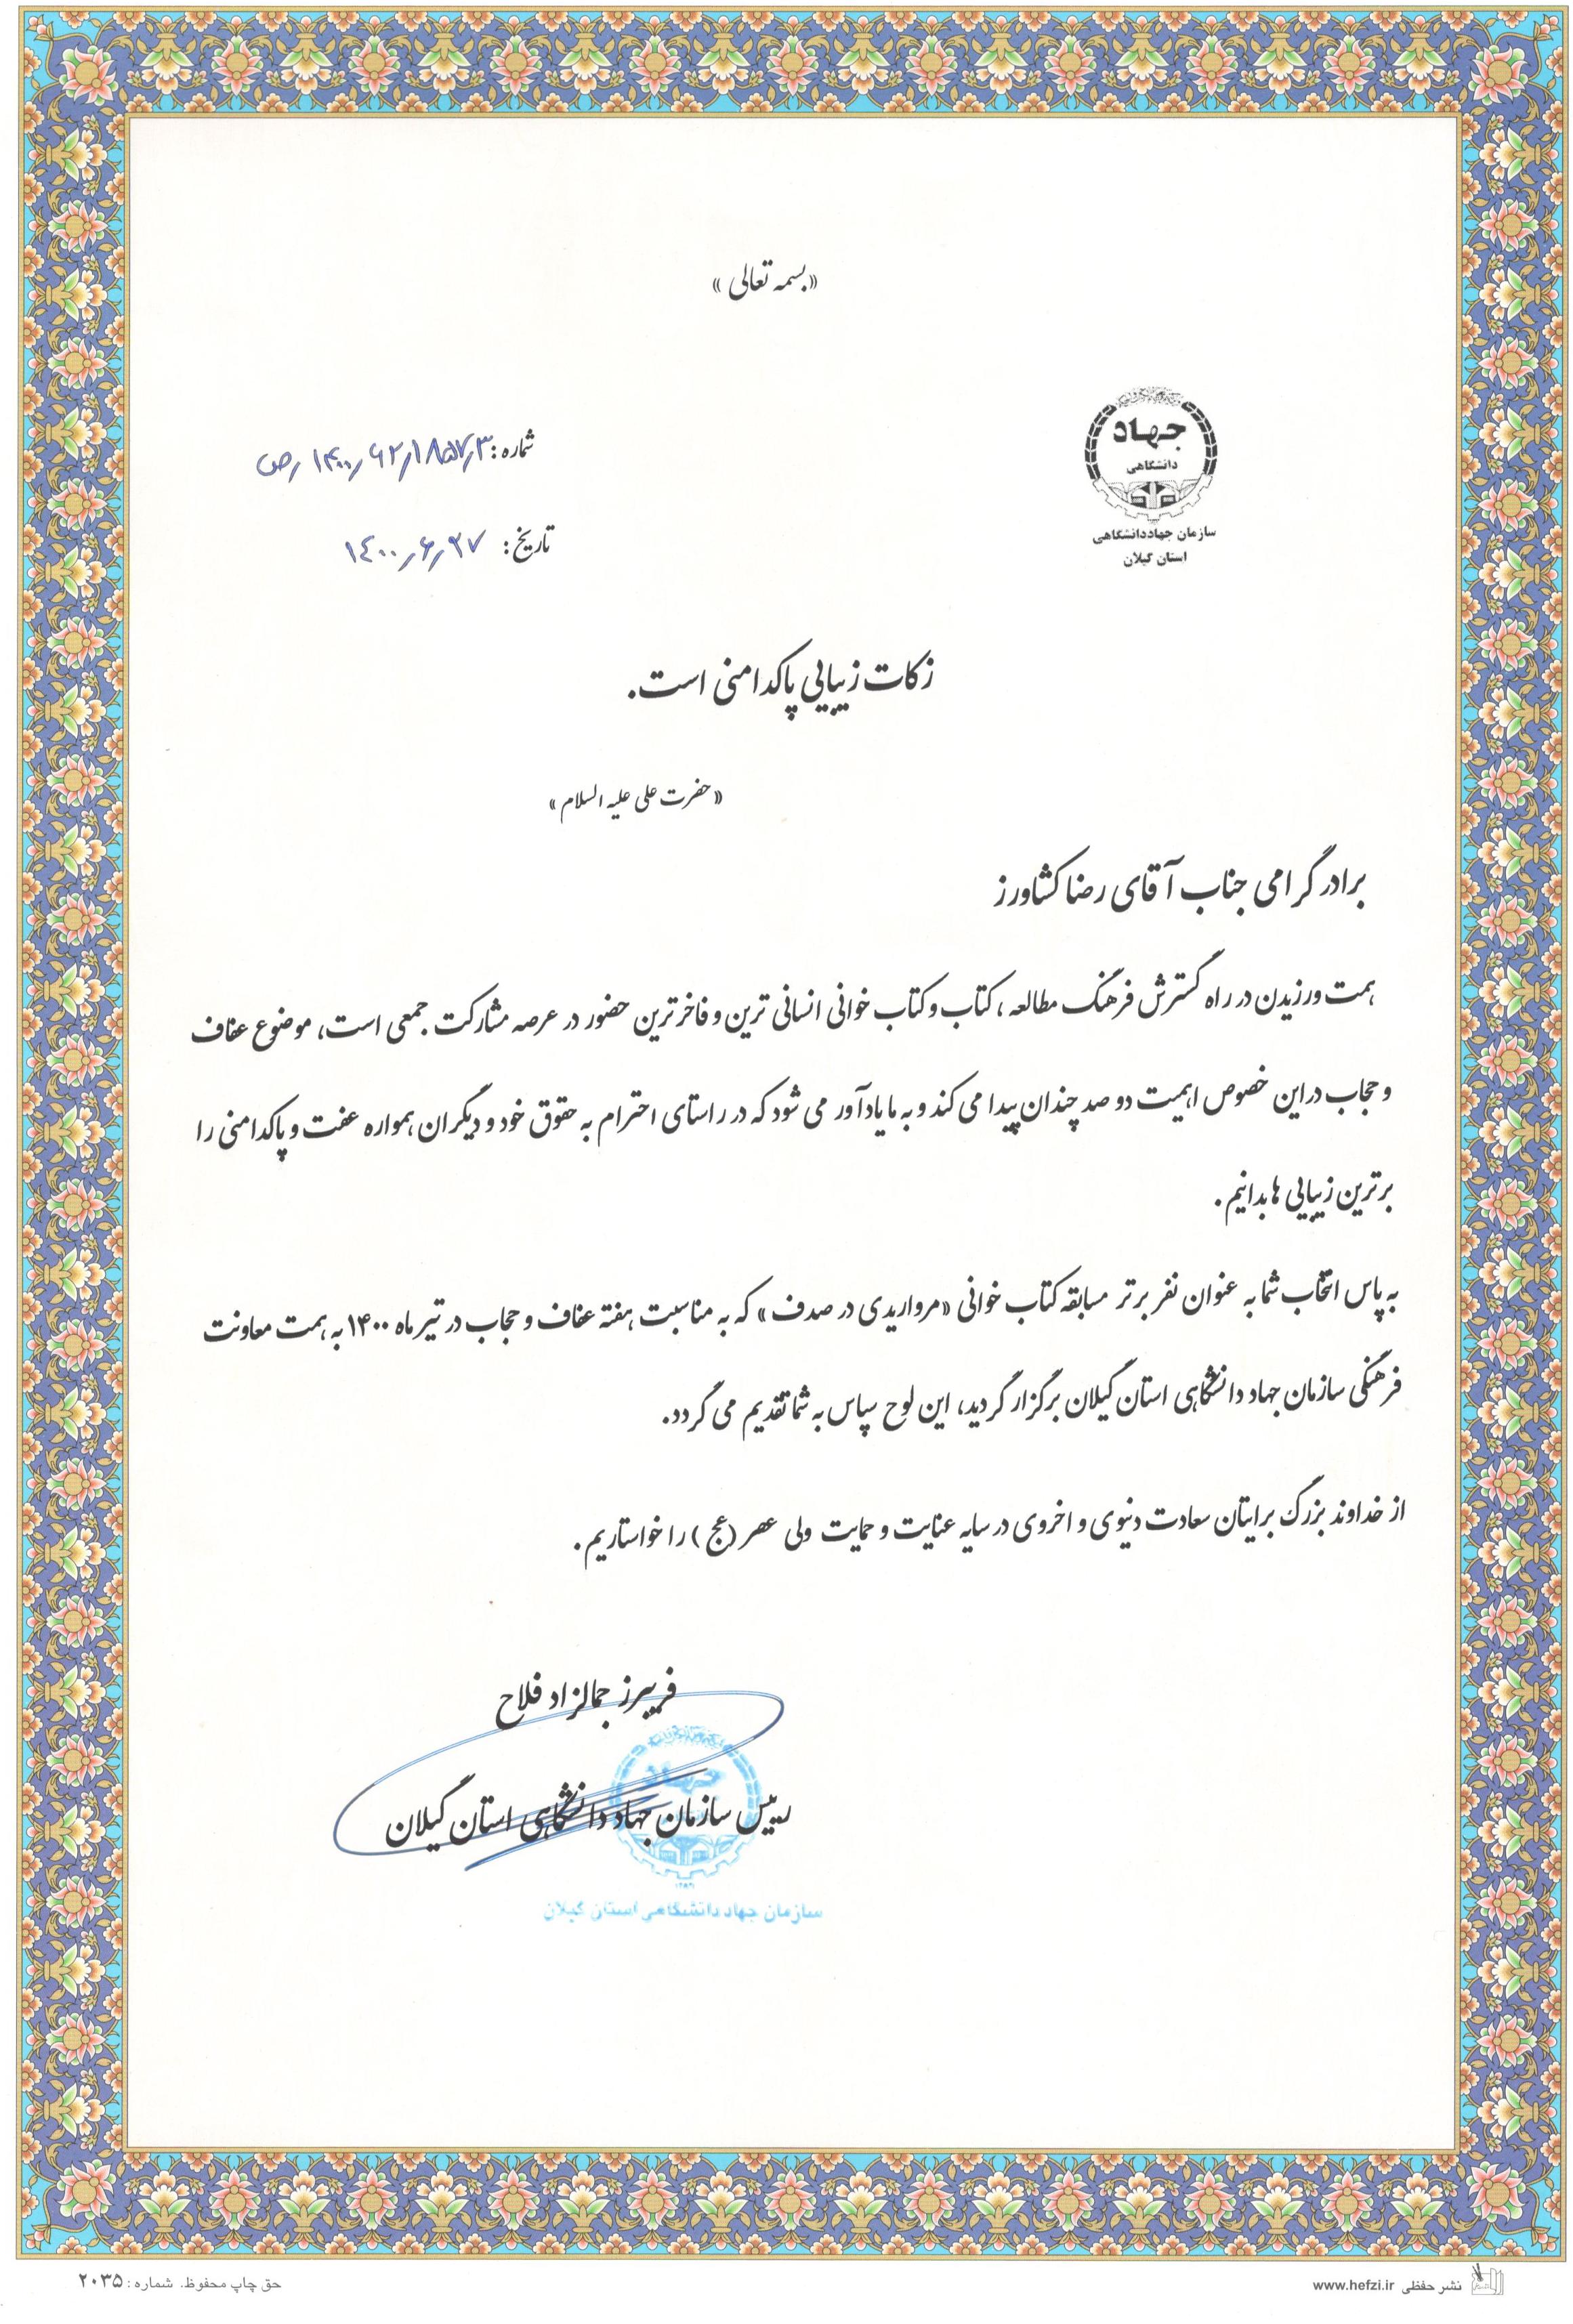 «بسمه تعالی»
جهاد
دانشگاهی
سازمان جهاددانشگاهی
استان گیلان
شماره:
تاریخ: ۱۴۰۰٫۶٫۲۷
زکات زیبایی پاکدامنی است.
«حضرت علی علیه السلام»
برادر گرامی جناب آقای رضا کشاورز
همت ورزیدن در راه گسترش فرهنگ مطالعه، کتاب و کتاب خوانی انسانی ترین و فاخرترین حضور در عرصه مشارکت جمعی است، موضوع عفاف
و حجاب در این خصوص اهمیت دو صد چندان پیدا می کند و به ما یادآور می شود که در راستای احترام به حقوق خود و دیگران همواره عفت و پاکدامنی را
برترین زیبایی ها بدانیم.
به پاس انتخاب شما به عنوان نفر برتر مسابقه کتاب خوانی «مرواریدی در صدف» که به مناسبت هفته عفاف و حجاب در تیر ماه ۱۴۰۰ به همت معاونت
فرهنگی سازمان جهاد دانشگاهی استان گیلان برگزار گردید، این لوح سپاس به شما تقدیم می گردد.
از خداوند بزرگ برایتان سعادت دنیوی و اخروی در سایه عنایت و حمایت ولی عصر (عج) را خواستاریم.
فریبرز جمالزاد فلاح
رییس سازمان جهاد دانشگاهی استان گیلان
سازمان جهاد دانشگاهی استان گیلان
نشر حفظی www.hefzi.ir
حق چاپ محفوظ. شماره: ۲۰۳۵